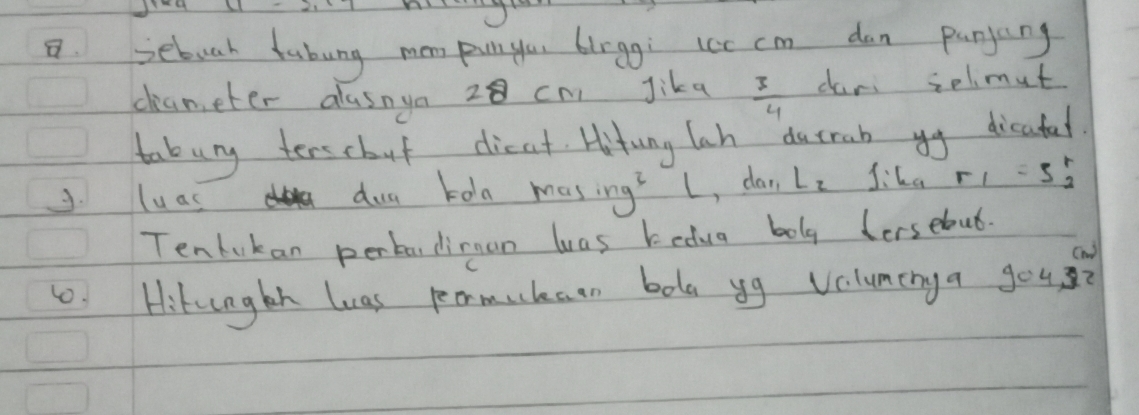 8. Sebuah tabung mempunyai tinggi 100 cm dan panjang
diameter alasnya 28 cm Jika 3/4 dari selimut
tabung tersebut dicat. Hitunglah daerah yg dicatat.
9. luas dua bola masing² L, dan L2 Jika r1 = 5 r2
Tentukan perbandingan luas kedua bola tersebut.
10. Hitunglah luas permukaan bola yg Volumenya 904,32 cm